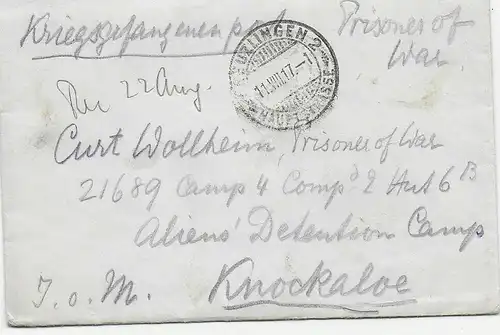 Kriegsgefangenenpost Prisoner of War
UZLINGEN 2
11.VIII.17.-7
HAUPTSTRASSE
22 Aug.
Curt Wollheim, Prisoner of War
21689 Camp 4 Comp d 2 Hut 6 B
Aliens' Detention Camp
I.o.M. Knockaloe